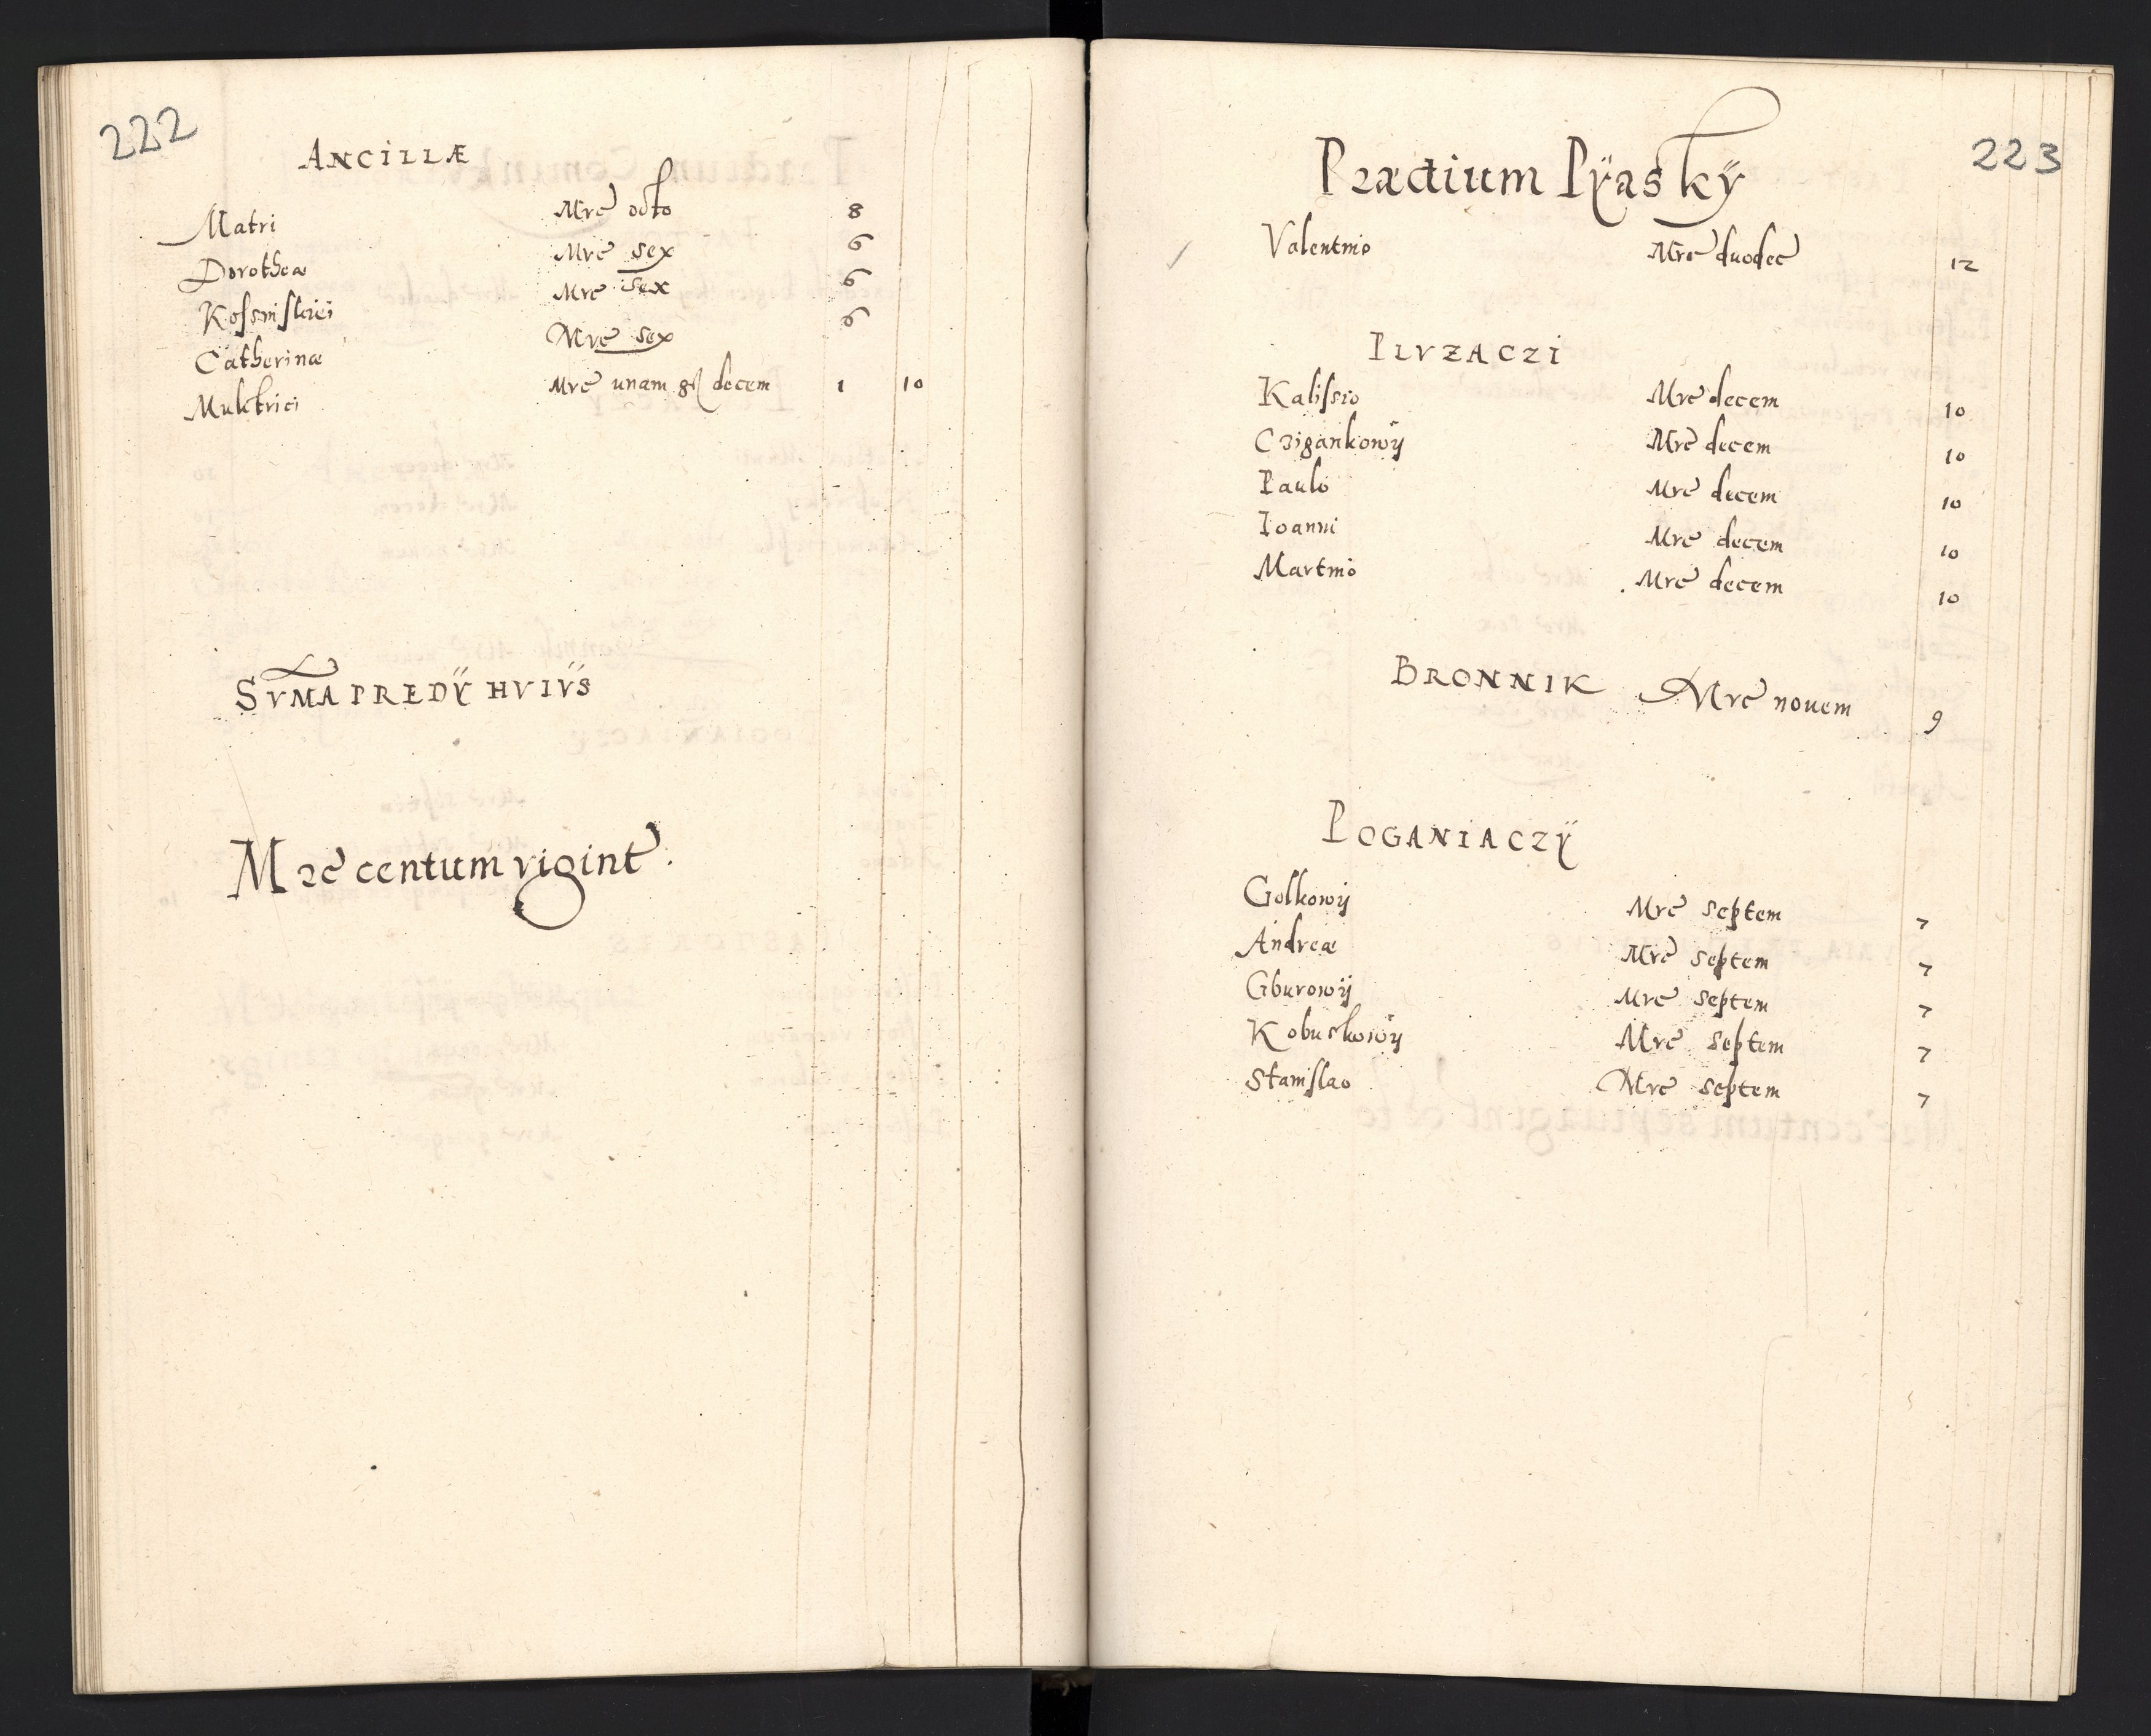 222
ANCILLÆ
Matri Mrc octo 8
Dorotheæ Mrc sex 6
Mrc sex 6
Catherinæ Mrc sex 6
Mulctrici Mrc unam gr decem 1 10
SVMA PREDŸ HVIVS
Mrc centum vigint.
223
Prædium Pÿaskÿ
Valentino Mrc duodec 12
PLVZACZI
Kalissio Mrc decem 10
Czigankowÿ Mrc decem 10
Paulo Mrc decem 10
Ioanni Mrc decem 10
Martino Mrc decem 10
BRONNIK Mrc nouem 9
POGANIACZŸ
Golkowÿ Mrc septem 7
Andreæ Mrc septem 7
Gburowÿ Mrc septem 7
Kobuskowÿ Mrc septem 7
Stanislao Mrc septem 7